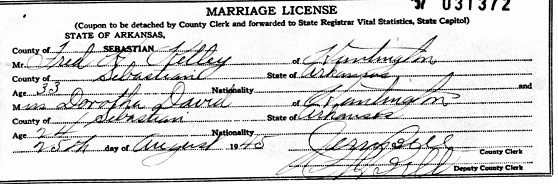 MARRIAGE LICENSE 031372
(Coupon to be detached by County Clerk and forwarded to State Registrar Vital Statistics, State Capitol)
STATE OF ARKANSAS,
County of SEBASTIAN
Mr. Fred Kelley of Huntington
County of Sebastian State of Arkansas
Age 33 Nationality and
Miss Dorotha David of Huntington
County of Sebastian State of Arkansas
Age 24 Nationality
25th day of August 1945
County Clerk
Deputy County Clerk